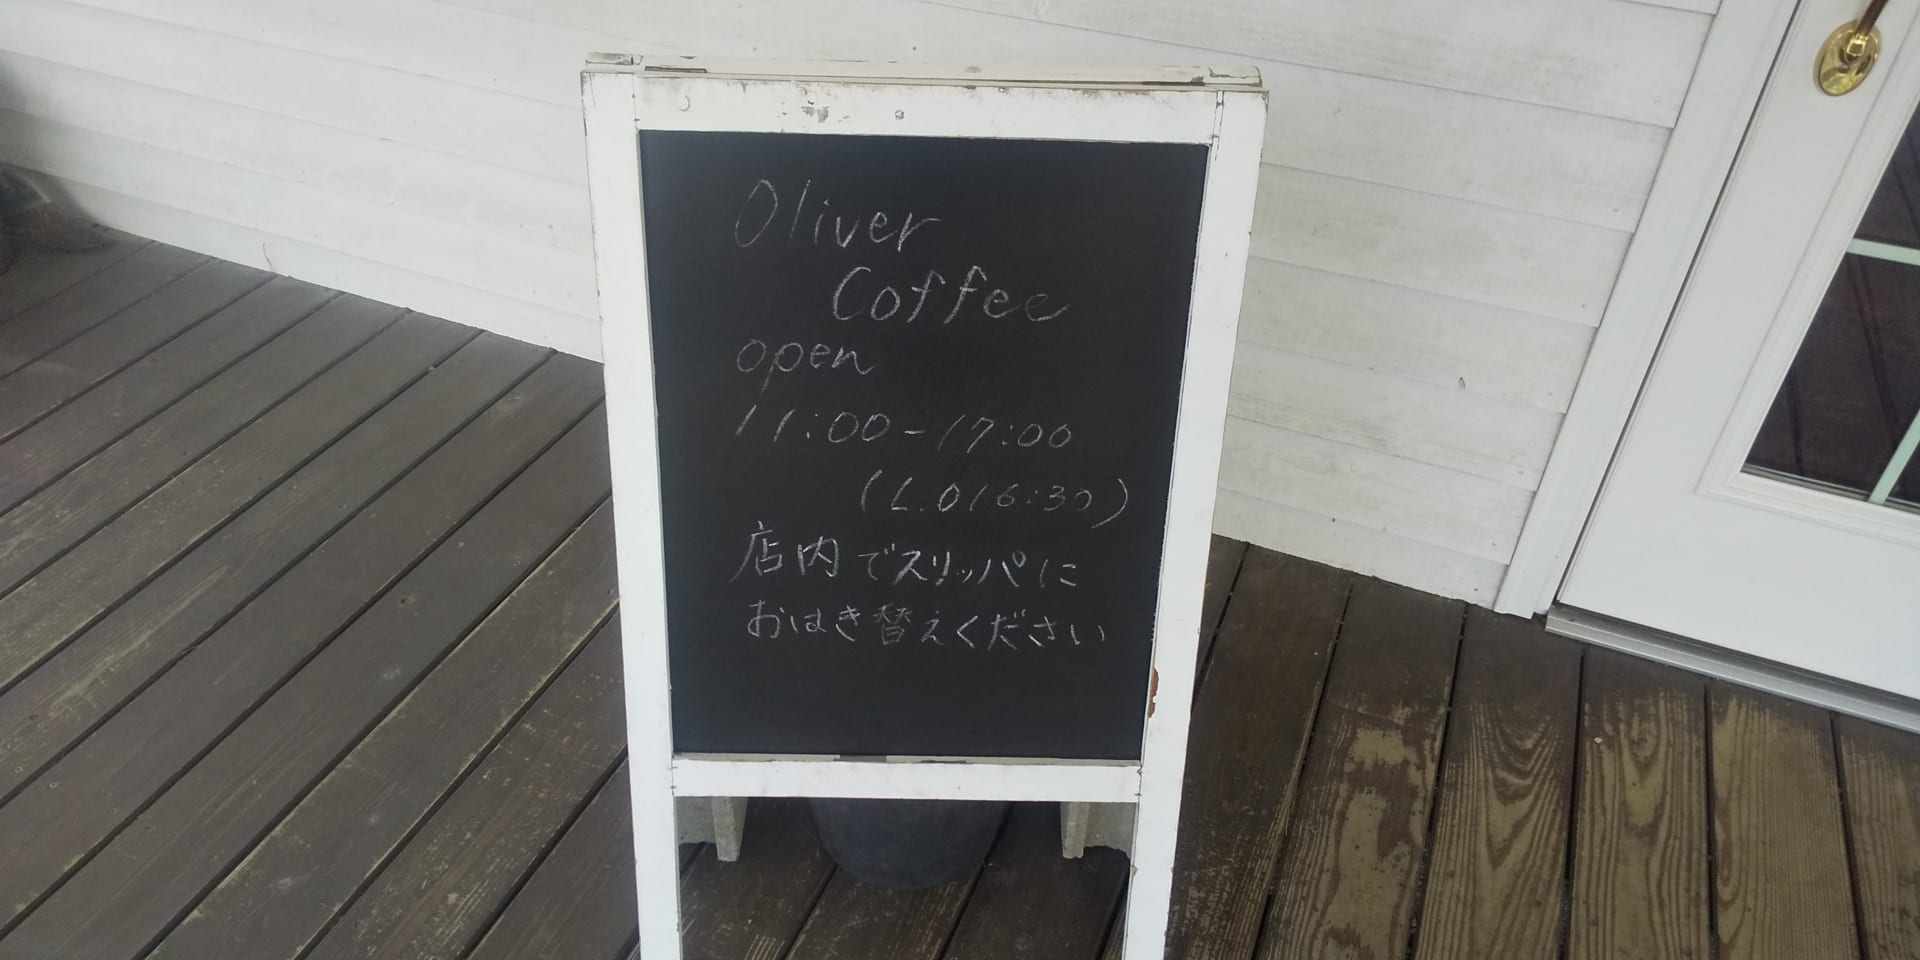 Oliver
Coffee
open
11:00-17:00
(L.O16:30)
店内でスリッパに
おはき替えください